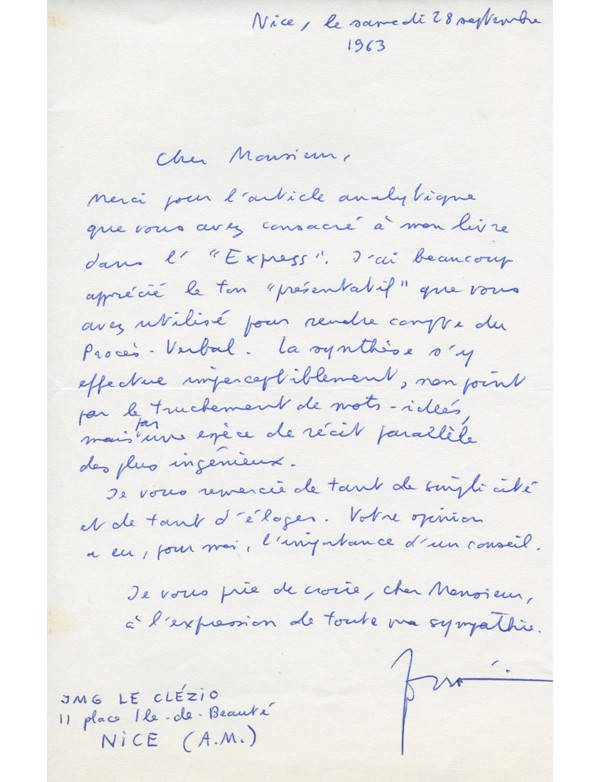 Nice, le samedi 28 septembre
1963
Cher Monsieur,
Merci pour l'article analytique
que vous avez consacré à mon livre
dans l' "Express". J'ai beaucoup
apprécié le ton "présentatif" que vous
avez utilisé pour rendre compte du
Procès-Verbal. La synthèse s'y
effectue imperceptiblement, non point
par le truchement de mots-ideés,
mais par une espèce de récit parallèle
des plus ingénieux.
Je vous remercie de tant de simplicité
et de tant d'éloges. Votre opinion
a eu, pour moi, l'importance d'un conseil.
Je vous prie de croire, cher Monsieur,
à l'expression de toute ma sympathie.
JMG LE CLÉZIO
11 place Ile-de-Beauté
NICE (A.M.)